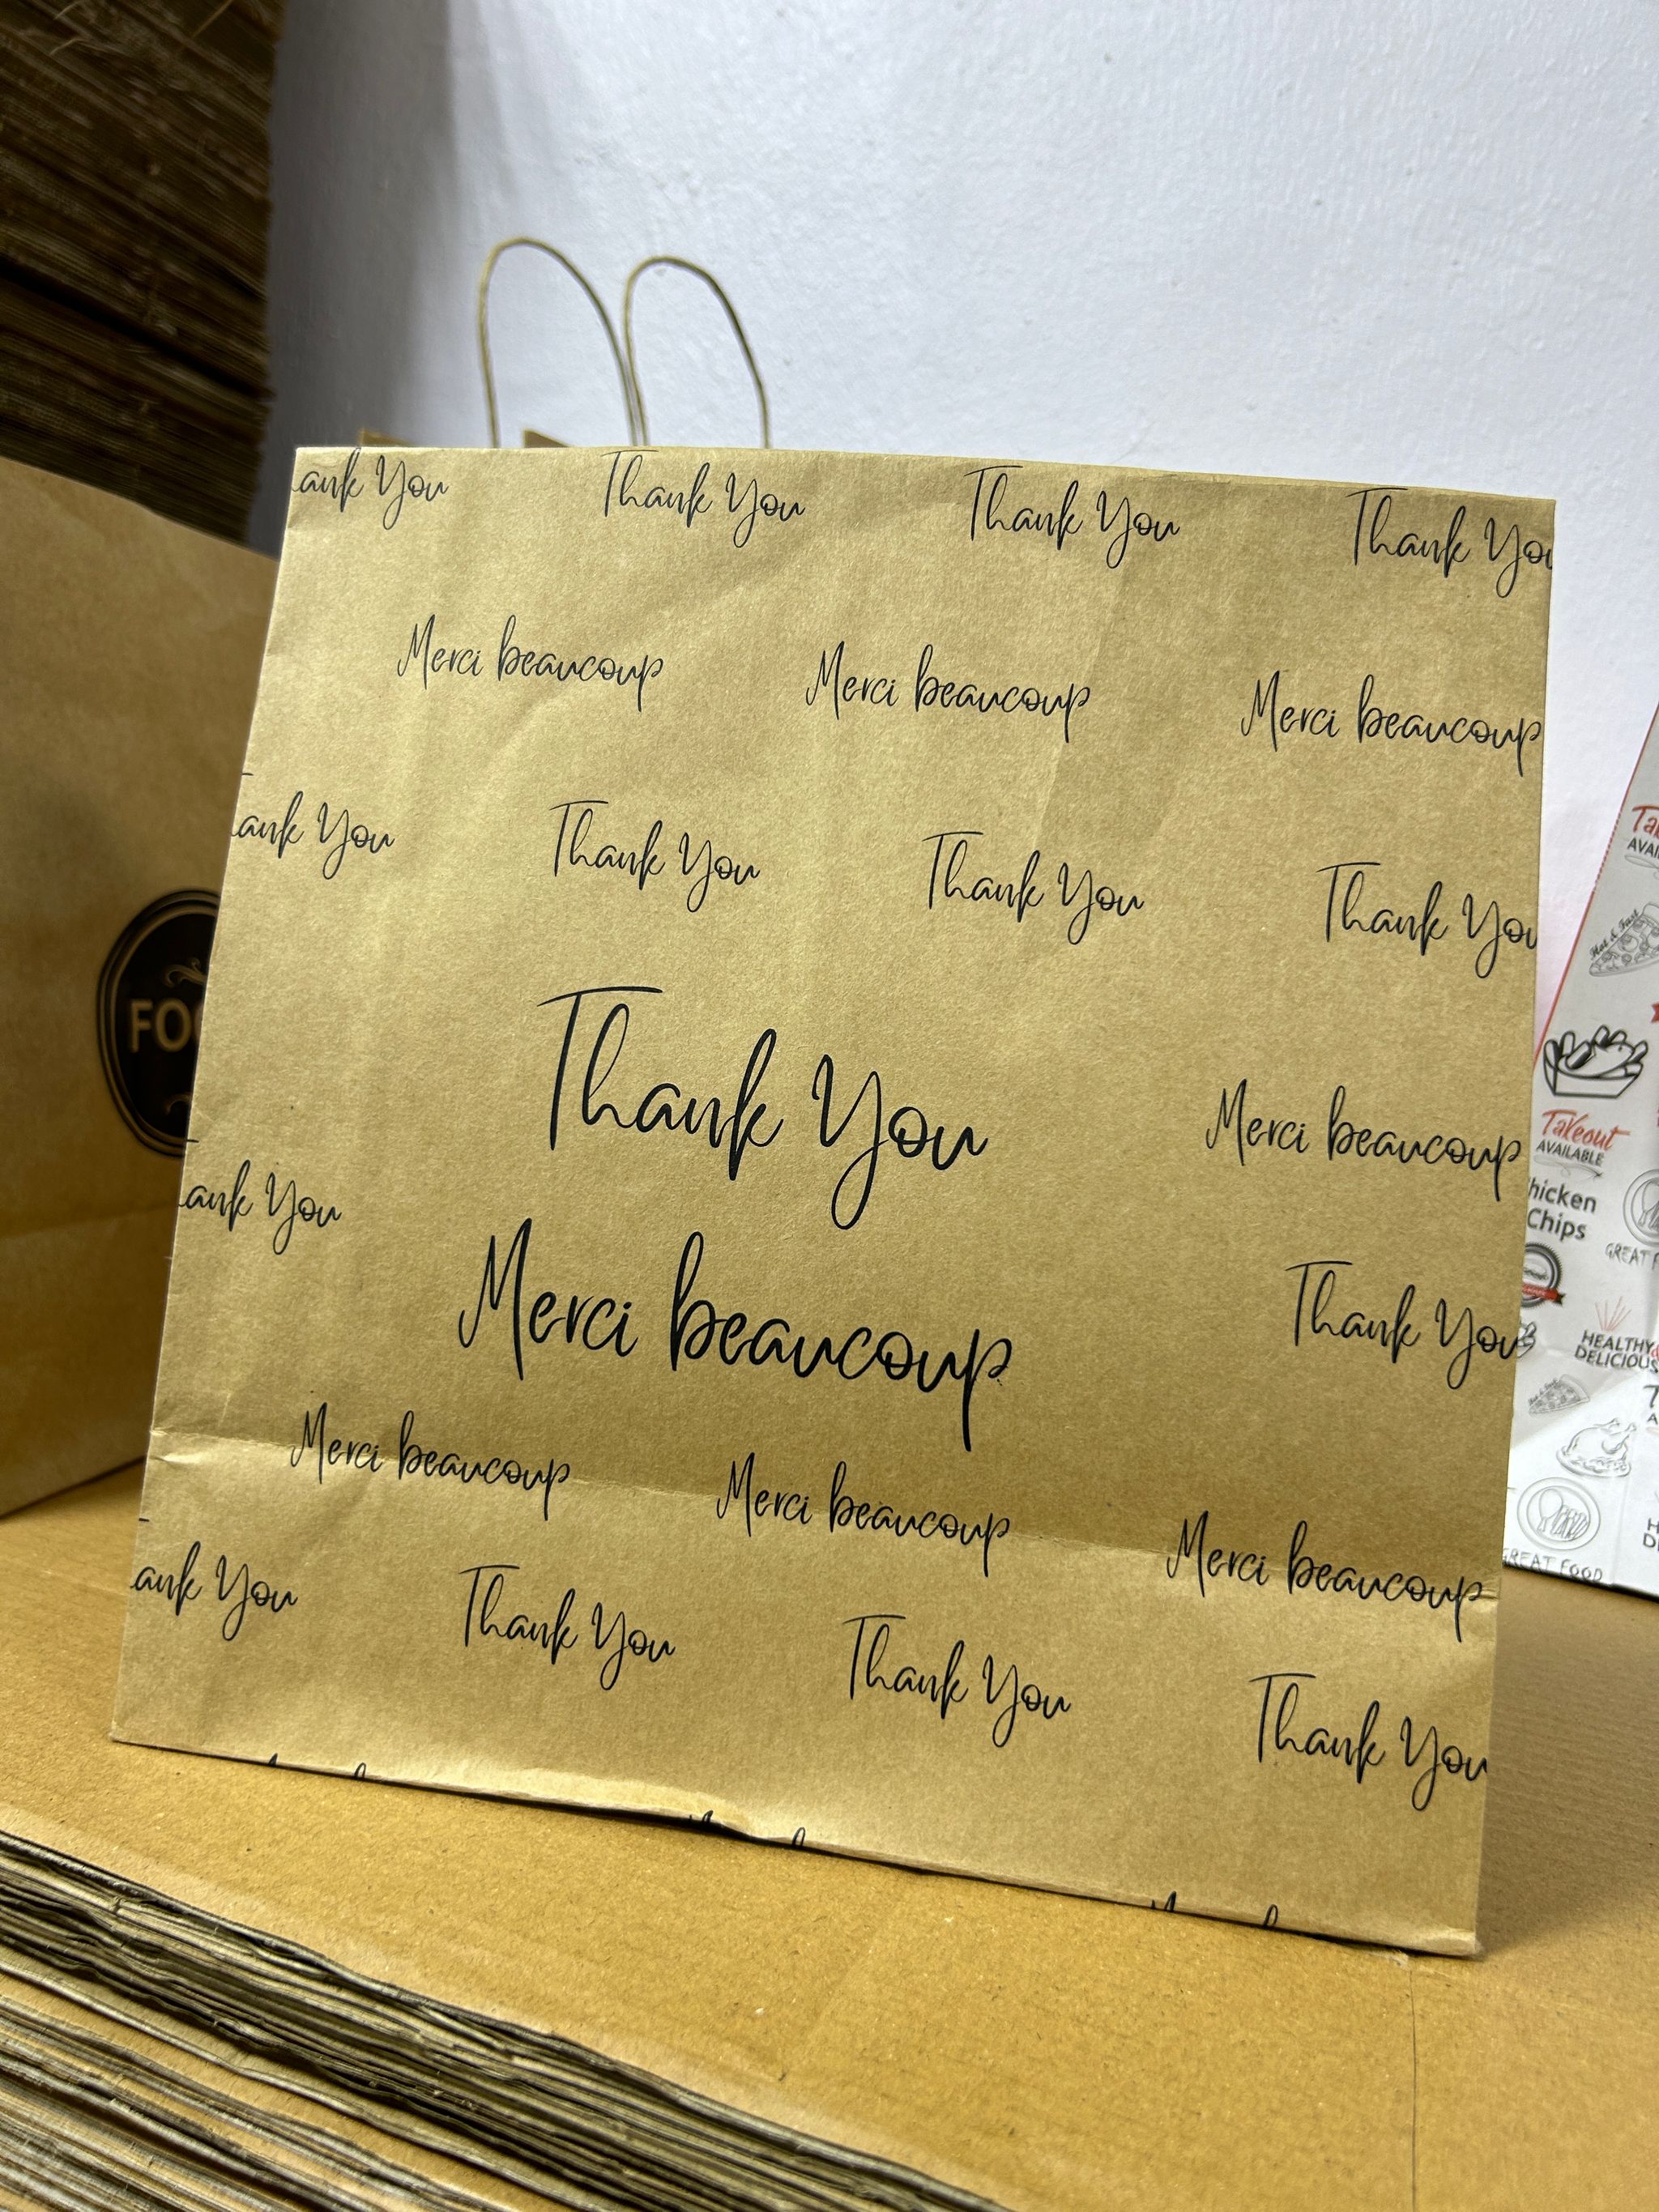 ank You Thank You Thank You Thank You
Merci beaucoup Merci beaucoup Merci beaucoup
ank You Thank You Thank You Thank You
Thank You
Merci beaucoup
ank You
Merci beaucoup
Thank You
Merci beaucoup Merci beaucoup Merci beaucoup
ank You Thank You Thank You Thank You
FOO
AVAI
Hot & Fast
Takeout
AVAILABLE
hicken
Chips
GREAT F
HEALTHY
DELICIOUS
GREAT FOOD